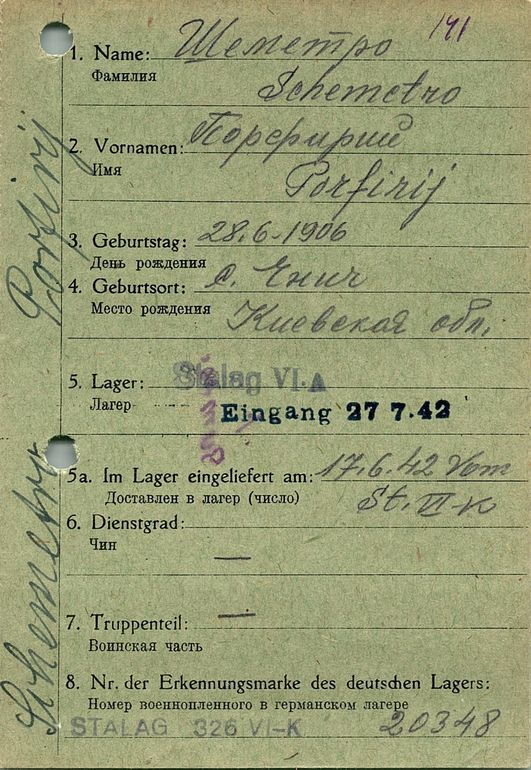 141
1. Name: Шеметро
Фамилия
Schemetro
2. Vornamen: Порфирий
Имя
Porfirij
3. Geburtstag: 28.6-1906
День рождения
4. Geburtsort: с. Енич
Место рождения
Киевская обл.
5. Lager: Stalag VI-A
Лагер
Eingang 27 7.42
5a. Im Lager eingeliefert am: 17.6.42 Vom
Доставлен в лагер (число)
St. VI-K
6. Dienstgrad:
Чин
—
7. Truppenteil: —
Воинская часть
8. Nr. der Erkennungsmarke des deutschen Lagers:
Номер военнопленного в германском лагере
STALAG 326 VI-K 20348
Schemetro Porfirij